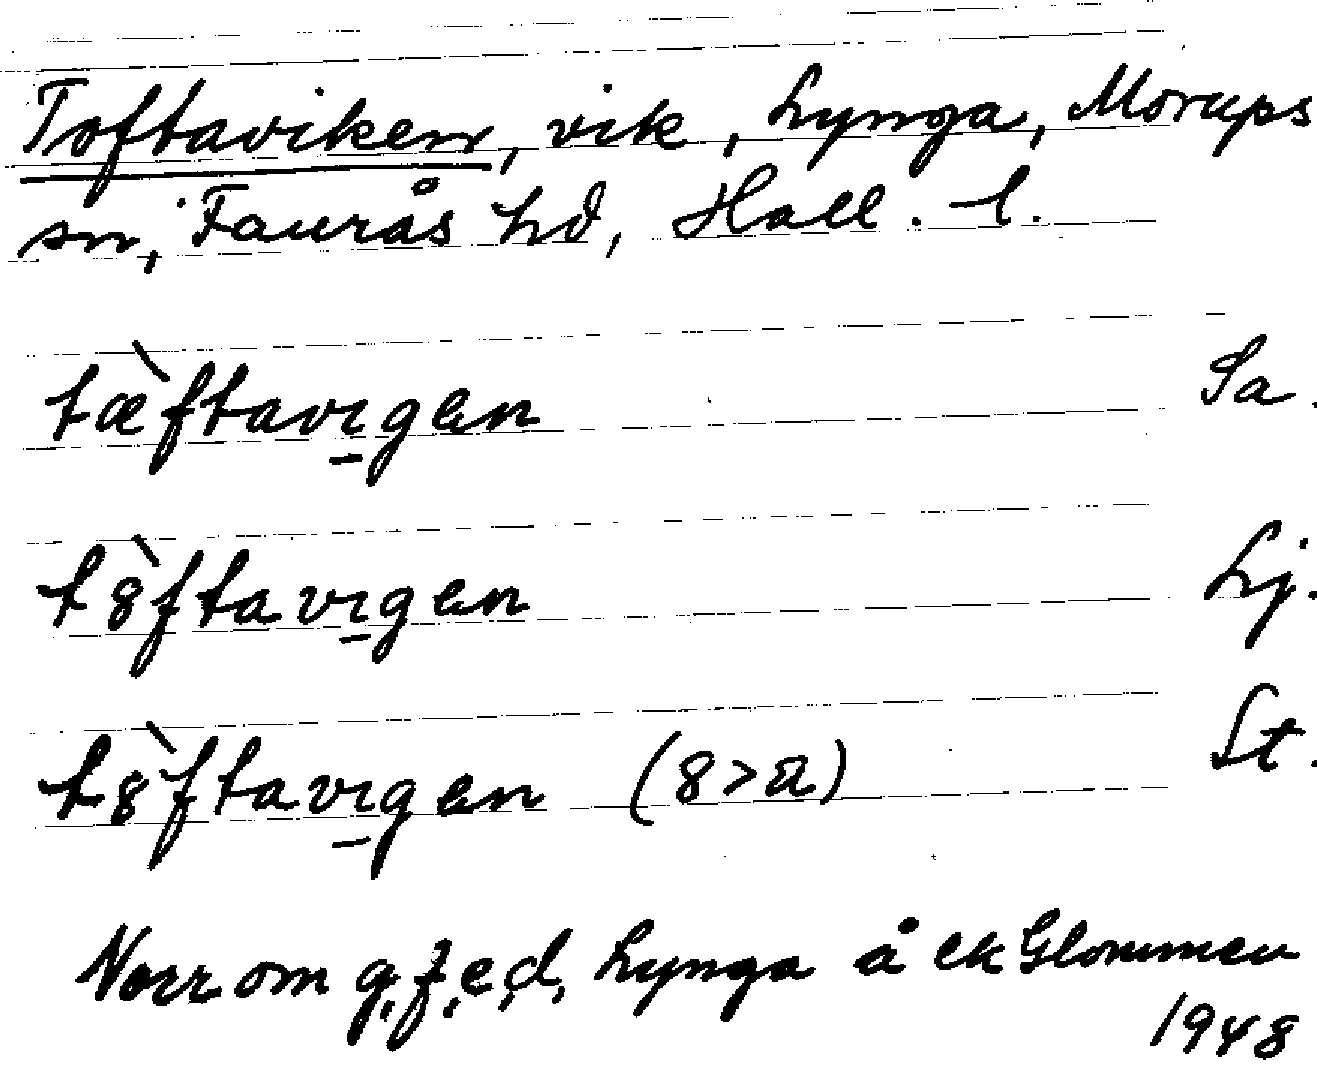 Toftaviken, vik, Lynga, Morups
sn, Faurås hd, Hall. l.
tæ̀ftavıgen Sa.
t8̀ftavıgen Lj.
t8̀ftavıgen (8>a) St.
Norr om g, f, e, d, Lynga å ek Glommen
1948